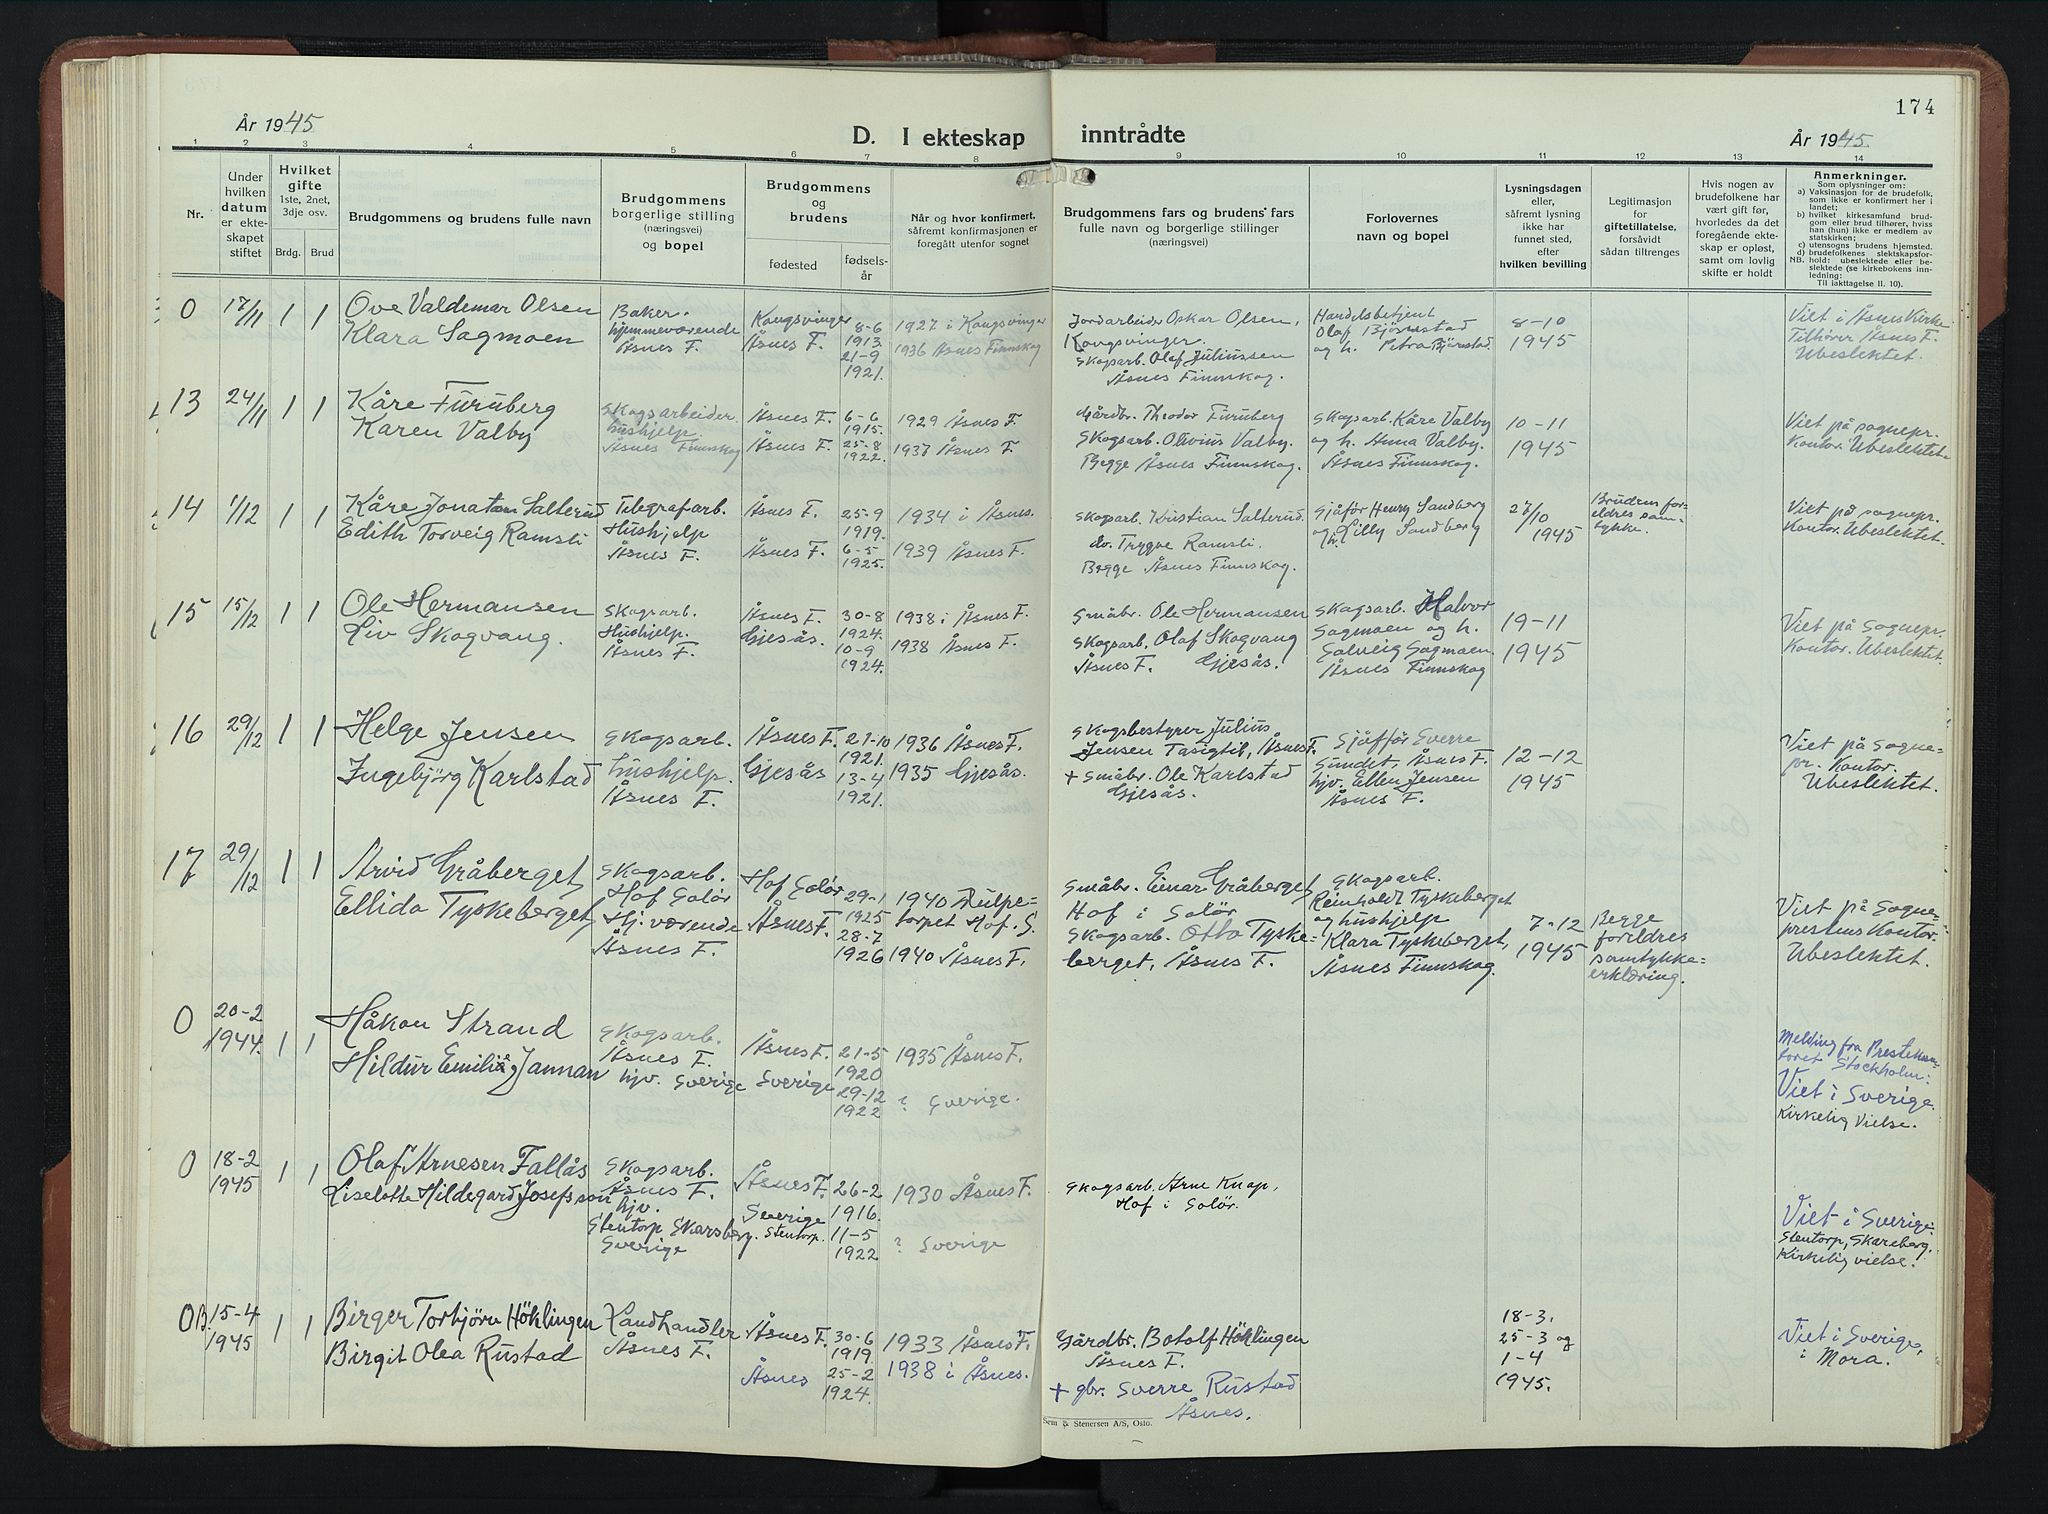 174
År 1945
D. I ekteskap inntrådte
År 1945.
1 2 3 4 5 6 7 8 9 10 11 12 13 14
Nr.
Under hvilken datum er ekteskapet stiftet
Hvilket gifte 1ste, 2net, 3dje osv.
Brdg. Brud
Brudgommens og brudens fulle navn
Brudgommens borgerlige stilling (næringsvei) og bopel
Brudgommens og brudens
fødested
fødselsår
Når og hvor konfirmert, såfremt konfirmasjonen er foregått utenfor sognet
Brudgommens fars og brudens fars fulle navn og borgerlige stillinger (næringsvei)
Forlovernes navn og bopel
Lysningsdagen eller, såfremt lysning ikke har funnet sted, efter hvilken bevilling
Legitimasjon for giftetillatelse, forsåvidt sådan tiltrenges
Hvis nogen av brudefolkene har vært gift før, hvorledes da det foregående ekteskap er opløst, samt om lovlig skifte er holdt
Anmerkninger.
Som oplysninger om:
a) Vaksinasjon for de brudefolk, som ikke er konfirmert her i landet;
b) hvilket kirkesamfund brudgom eller brud tilhører, hviss han (hun) ikke er medlem av statskirken;
c) utensogns brudens hjemsted.
d) brudefolkenes slektskapsforhold: ubeslektede eller beslektede (se kirkebokens innledning:
NB.
Til iakttagelse II. 10).
0 17/11 1 1
Ove Valdemar Olsen
Klara Sagmoen
Baker.
hjemmeværende
Åsnes F.
Kongsvinger
Åsnes F.
8-6
1913.
21-9
1921.
1927 i Kongsvinger
1936 Åsnes Finnskog
Jordarbeider Oskar Olsen,
Kongsvinger.
Skogsarb. Olaf Juliussen
Åsnes Finnskog.
Handelsbetjent
Olaf Bjørnstad
og h. Petra Bjørnstad.
8-10
1945
Viet i Åsnes Kirke
Tilhører Åsnes F.
Ubeslektet.
13 24/11 1 1
Kåre Furuberg
Karen Valby
Skogsarbeider.
hushjelp
Åsnes Finnskog
Åsnes F.
Åsnes F.
6-6
1915.
25-8
1922.
1929 Åsnes F.
1937 Åsnes F
Gårdbr. Theodor Furuberg
Skogsarb. Olivius Valby.
Begge Åsnes Finnskog.
Skogsarb. Kåre Valby
og h. Anna Valby.
Åsnes Finnskog.
10-11
1945
Viet på sognepr.
Kontor. Ubeslektet.
14 1/12 1 1
Kåre Jonatan Salterud
Edith Torveig Ramsli
Telegrafarb.
Hushjelp
Åsnes F.
Åsnes F.
Åsnes F.
25-9
1919.
6-5
1925.
1934 i Åsnes.
1939 Åsnes F.
Skogsarb. Kristian Salterud.
do. Trygve Ramsli.
Begge Åsnes Finnskog.
Sjåfør Henry Sandberg
og h. Lilly Sandberg
27/10
1945
Brudens foreldres samtykke.
Viet på sognepr.
Kontor. Ubeslektet.
15 15/12 1 1
Ole Hermansen
Liv Skogvang.
Skogsarb.
Hushjelp.
Åsnes F.
Åsnes F.
Gjesås.
30-8
1924.
10-9
1924.
1938 i Åsnes F.
1938 Åsnes F.
Småbr. Ole Hermansen
Skogsarb. Olaf Skogvang
Åsnes F. Gjesås.
Skogsarb. Halvor
Sagmoen og h.
Solveig Sagmoen.
Åsnes Finnskog
19-11
1945
Viet på Sognepr.
Kontor. Ubeslektet.
16 29/12 1 1
Helge Jensen
Ingebjørg Karlstad
Skogsarb.
hushjelp.
Åsnes F.
Åsnes F.
Gjesås
21-10
1921.
13-4
1921.
1936 Åsnes F.
1935 Gjesås.
Skogsbestyrer Julius
Jensen Tasigtil, Åsnes F.
+ Småbr. Ole Karlstad
Gjesås.
Sjåfför Sverre
Sundet, Åsnes F.
hjv. Ellen Jensen
Åsnes F.
12-12
1945
Viet på Sognepr. Kontor.
Ubeslektet.
17 29/12 1 1
Arvid Gråberget
Ellida Tyskeberget
Skogsarb.
Hof Solör
Hj. værende
Åsnes F.
Hof Solör
Åsnes F.
29-1
1925
28-7
1926
1940 Kulpetorpet Hof. S.
1940 Åsnes F.
Småbr. Einar Gråberget
Hof i Solör
Skogsarb. Otto Tyskeberget, Åsnes F.
Skogsarb.
Reinholdt Tyskeberget
og hushjelp
Klara Tyskeberget,
Åsnes Finnskog.
7-12
1945
Begge foreldres samtykkeerklæring.
Viet på Sogneprestens Kontor.
Ubeslektet.
0 20-2 1944. 1 1
Håkon Strand
Hildur Emilie Jannan
Skogsarb.
Åsnes F.
hjv. Sverige
Åsnes F.
Sverige
21-5
1920
29-12
1922
1935 Åsnes F.
? Sverige.
Melding fra Prestekontoret Stockholm:
Viet i Sverige.
Kirkelig Vielse.
0 18-2 1945 1 1
Olaf Arnesen Fallås
Liselotte Hildegard Josefsson
Skogsarb.
Åsnes F.
hjv.
Stentorp, Skarsberg.
Sverige
Åsnes F.
Sverige
Stentorp.
26-2
1916.
11-5
1922
1930 Åsnes F.
? Sverige
Skogsarb. Arne Knap,
Hof i Solör.
Viet i Sverige:
Stentorp, Skareberg.
Kirkelig vielse.
0B. 15-4 1945 1 1
Birger Torbjørn Höklingen
Birgit Olea Rustad
Landhandler
Åsnes F.
Åsnes F.
Åsnes
30-6
1919.
25-2
1924.
1933 Åsnes F.
1938 i Åsnes.
Gårdbr. Botolf Höklingen
Åsnes F.
+ gbr. Sverre Rustad
Åsnes.
18-3.
25-3 og
1-4
1945.
Viet i Sverige,
i Mora.
Sem & Stenersen A/S, Oslo.